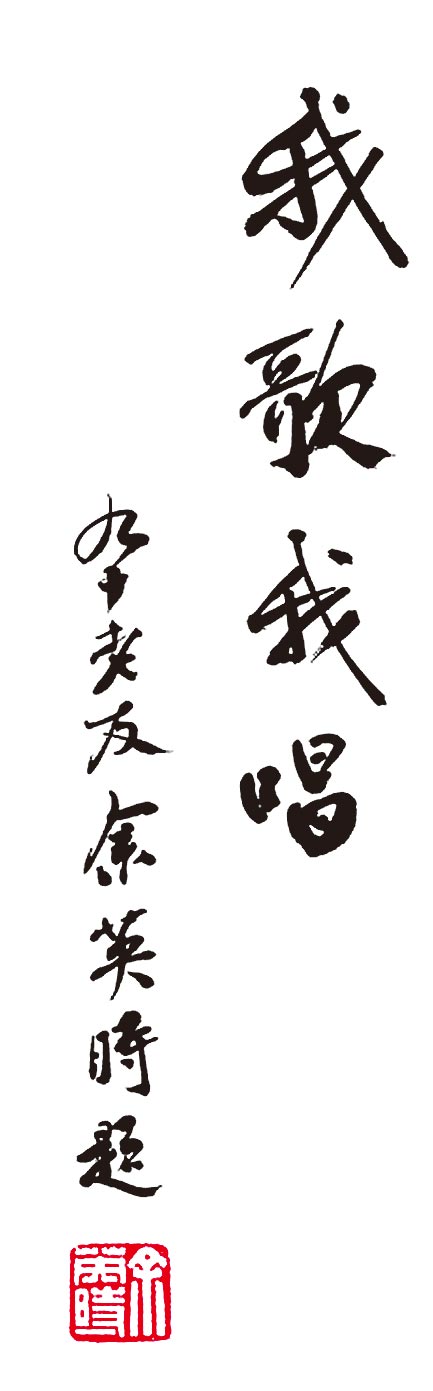 我歌我唱
九十老友余英時題
余英時